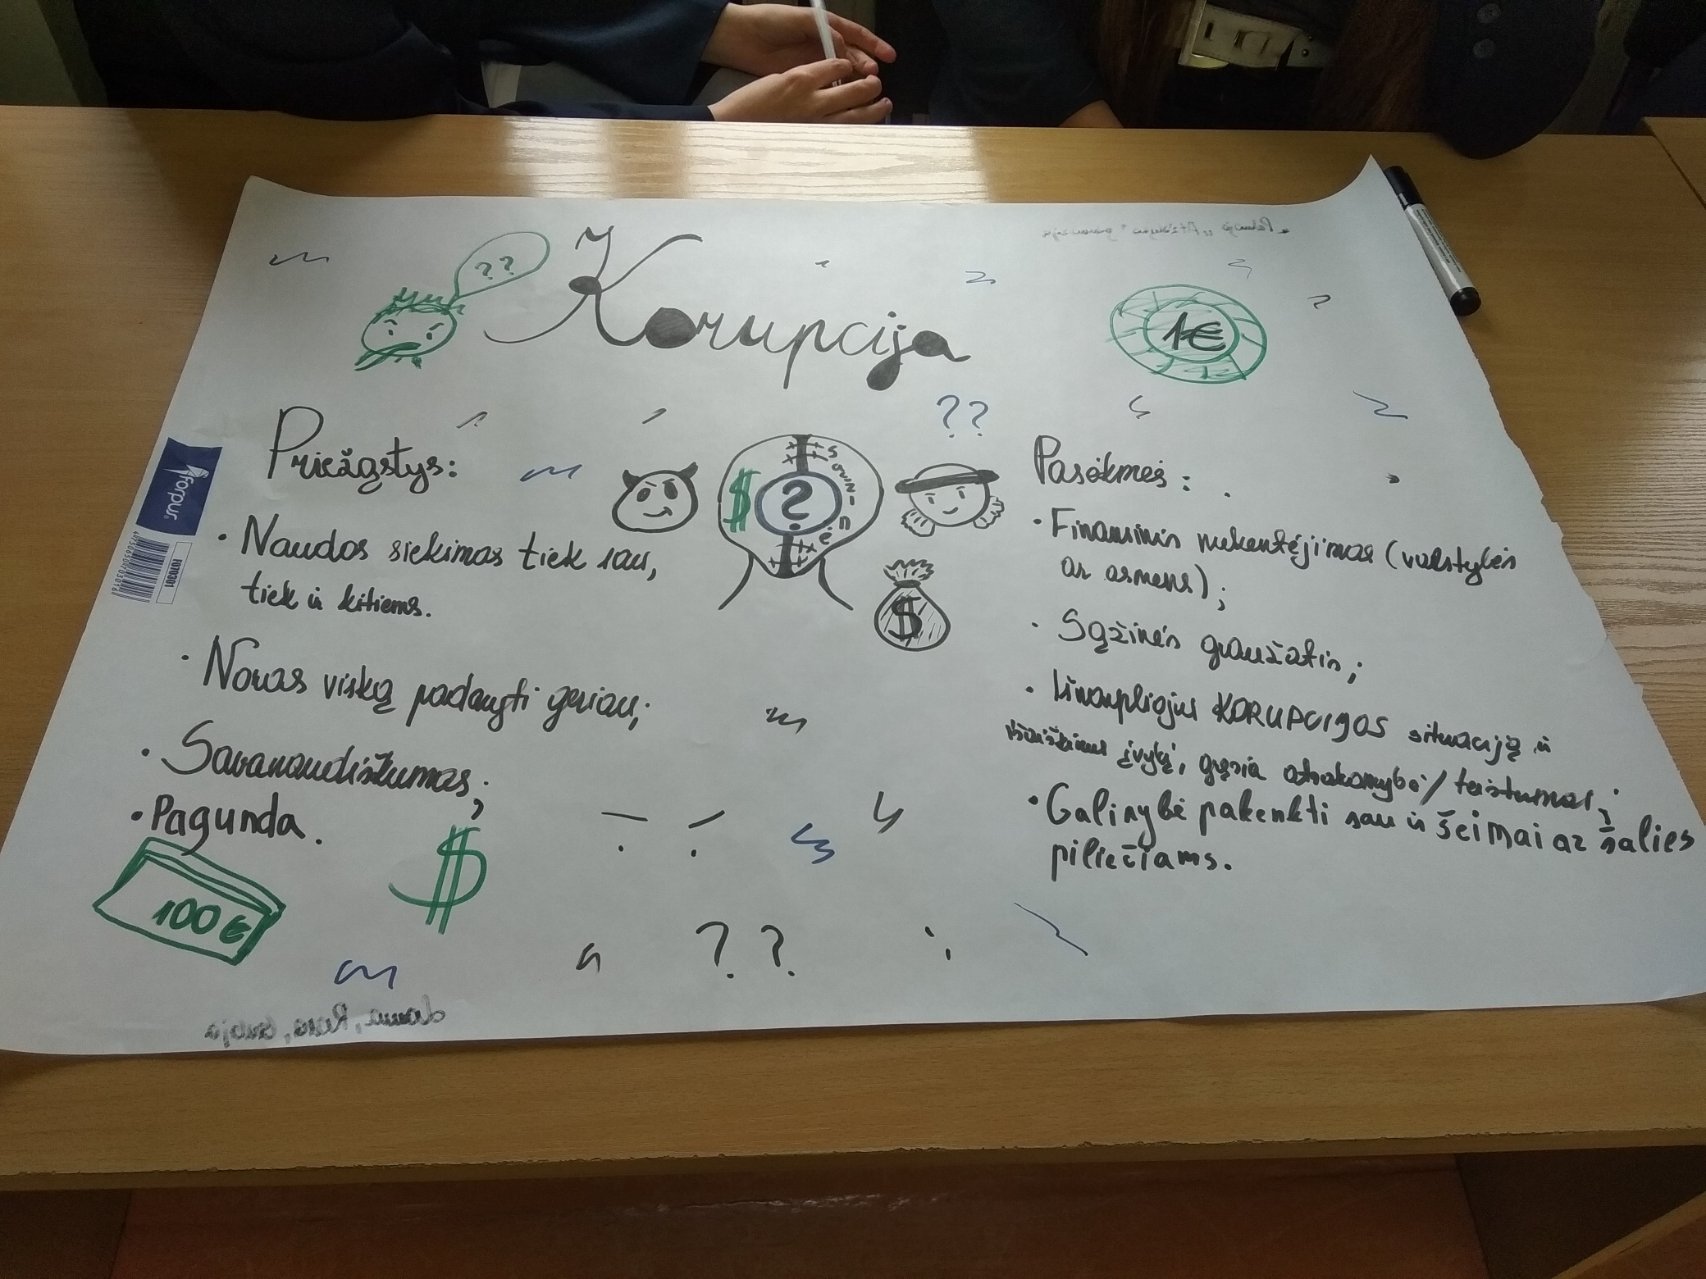 Korupcija
??
1€
??
Priežastys:
• Naudos siekimas tiek sau,
tiek ir kitiems.
• Noras viską padaryti geriau;
• Savanaudiškumas;
• Pagunda.
100€
$
$
?
$
Pasekmės:
• Finansinis nukentėjimas (valstybės
ar asmens);
• Sąžinės graužatis;
• KORUPCIJOS situaciją ir
įvykį, gręsia atsakomybė/teistumas;
• Galimybė pakenkti sau ir šeimai ar šalies
piliečiams.
??
forpus